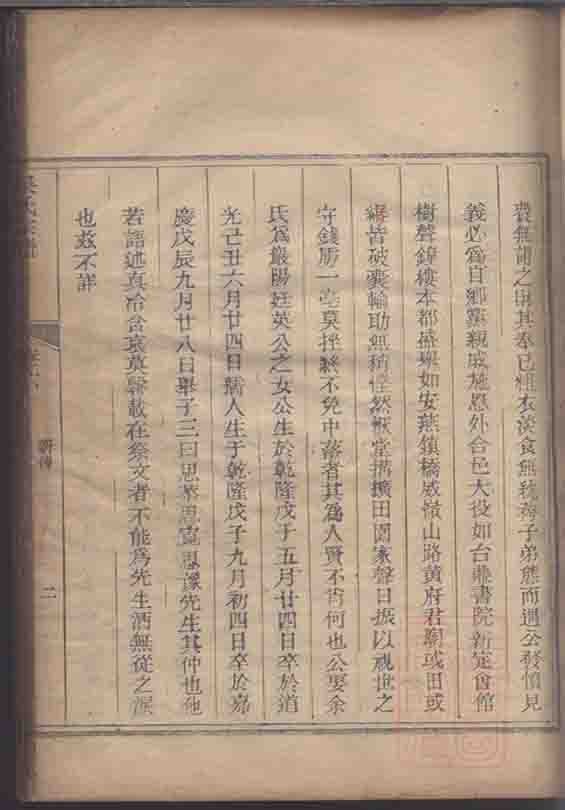 費無謂之田其奉已粗衣淡食無紈袴子弟態而遇公發憤見
義必爲自鄉黨親戚施惠外合邑大役如台鼎書院新定會館
樹聲鐘樓本都盛舉如安燕鎮橋威嶺山路黃府君廟或田或
繈皆破囊輸助無稍慳然猷堂搆擴田園家聲日振以視世之
守錢虜一毫莫挫終不免中落者其爲人賢不肖何也公娶余
氏爲嚴陽廷英公之女公生於乾隆戊子五月廿四日卒於道
光己丑六月廿四日孺人生于乾隆戊子九月初四日卒於嘉
慶戊辰九月廿八日舉子三曰思恭思寬思謙先生其仲也他
若語述真冷含哀莫罄載在祭文者不能爲先生洒無從之淚
也茲不詳
吳氏宗譜
二